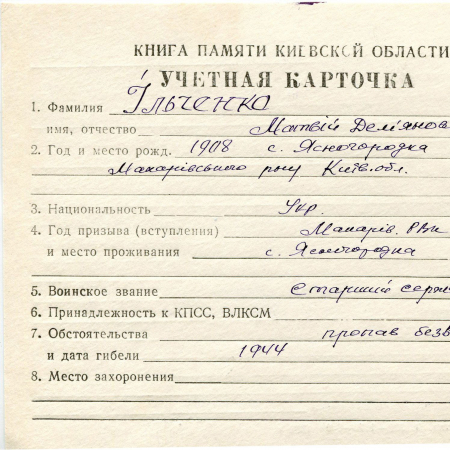 КНИГА ПАМЯТИ КИЕВСКОЙ ОБЛАСТИ
УЧЕТНАЯ КАРТОЧКА
1. Фамилия Ільченко
имя, отчество Матвій Дем'янов
2. Год и место рожд. 1908 с. Ясногородка
Макарівського р-ну Київ. обл.
3. Национальность Укр.
4. Год призыва (вступления) Макарів. РВК
и место проживания с. Ясногородка
5. Воинское звание Старший серж
6. Принадлежность к КПСС, ВЛКСМ
7. Обстоятельства пропав безв
и дата гибели 1944
8. Место захоронения